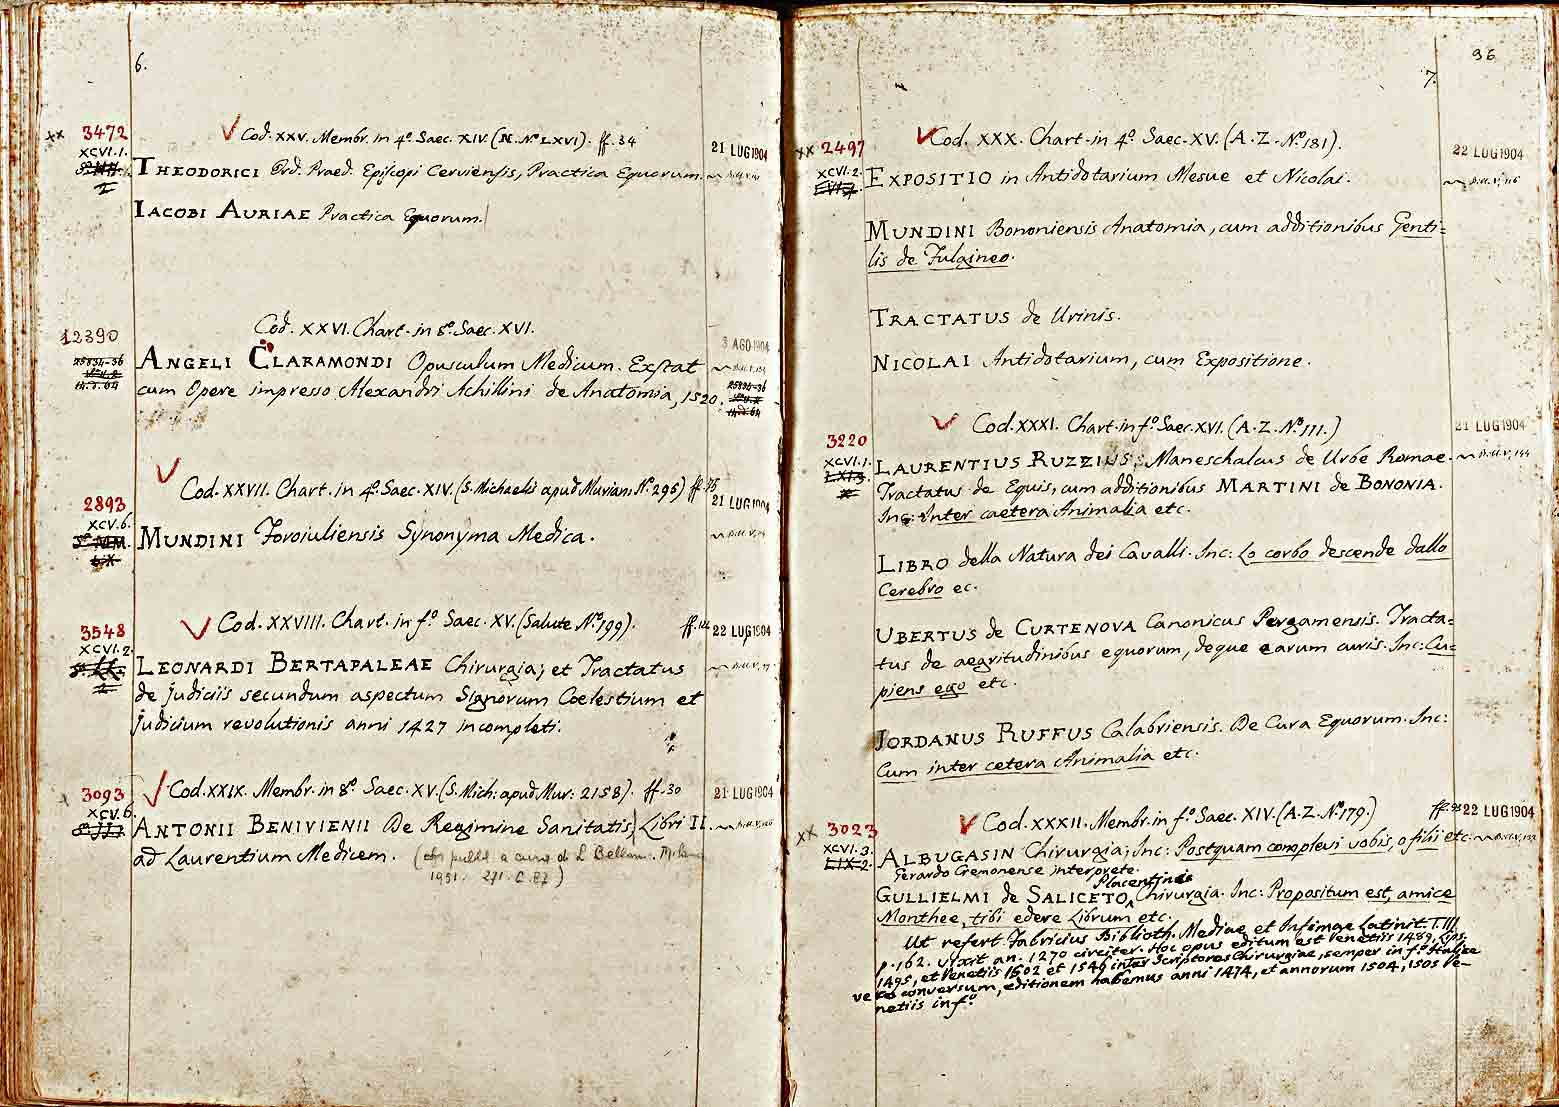 6.
xx 3472
XCVI.1.
Cod. XXV. Membr. in 4º. Saec. XIV. (N. Nº LXVI). ff. 34
21 LUG 1904
THEODORICI Ord. Praed. Episcopi Cerviensis, Practica Equorum.
IACOBI AURIAE Practica Equorum.
12390
Cod. XXVI. Chart. in 8º. Saec. XVI.
3 AGO 1904
ANGELI CLARAMONDI Opusculum Medicum. Exstat
cum Opere impresso Alexandri Achillini de Anatomia, 1520.
25834-36
14.d.64
Cod. XXVII. Chart. in 4º. Saec. XIV. (S. Michaelis apud Murian. Nº. 296) ff. 75
2893
XCV.6.
21 LUG 1904
MUNDINI Foroiuliensis Synonyma Medica.
3548
XCVI.2.
Cod. XXVIII. Chart. in fº. Saec. XV. (Salute Nº. 199). ff.
22 LUG 1904
LEONARDI BERTAPALEAE Chirurgia; et Tractatus
de judiciis secundum aspectum Signorum Coelestium et
judicium revolutionis anni 1427 incompleti.
x 3093
XCV.6.
Cod. XXIX. Membr. in 8º. Saec. XV. (S. Mich: apud Mur: 2158). ff. 30
21 LUG 1904
ANTONII BENIVIENII De Regimine Sanitatis, Libri II.
ad Laurentium Medicem. (
1951. 271. C. 87)
96
7.
xx 2497
XCVI.2.
Cod. XXX. Chart. in 4º. Saec. XV. (A. Z. Nº. 181).
22 LUG 1904
EXPOSITIO in Antidotarium Mesue et Nicolai.
MUNDINI Bononiensis Anatomia, cum additionibus Genti=
lis de Fulgineo.
TRACTATUS de Urinis.
NICOLAI Antidotarium, cum Expositione.
3220
XCVI.1.
Cod. XXXI. Chart. in fº. Saec. XVI. (A. Z. Nº. 111.)
21 LUG 1904
LAURENTIUS RUZZIUS, Maneschalcus de Urbe Romae.
Tractatus de Equis, cum additionibus MARTINI de BONONIA.
Inc: Inter caetera Animalia etc.
LIBRO della Natura dei Cavalli. Inc: Lo corbo descende dallo
Cerebro ec.
UBERTUS de CURTENOVA Canonicus Pergamensis. Tracta=
tus de aegritudinibus equorum, deque earum curis. Inc: Cu=
piens ego etc.
JORDANUS RUFFUS Calabriensis. De Cura Equorum. Inc:
Cum inter cetera Animalia etc.
xx 3023
XCVI.3.
LIX.2.
Cod. XXXII. Membr. in fº. Saec. XIV. (A. Z. Nº. 179.) ff. 93
22 LUG 1904
ALBUGASIN Chirurgia; Inc: Postquam complevi vobis, o filii etc.
Gerardo Cremonense interprete.
GULLIELMI de SALICETO, Placentinis Chirurgia. Inc: Propositum est, amice
Monthee, tibi edere Librum etc.
Ut refert Fabricius Biblioth. Mediae et Infimae Latinit. T. III
p. 162. vixit an. 1270 circiter. Hoc opus editum est Venetiis 1489, Lips.
1495, et Venetiis 1502 et 1546 inter Scriptores Chirurgiae, semper in fº. Italice
vero conversum, editionem habemus anni 1474, et annorum 1504, 1505 Ve-
netiis in fº.